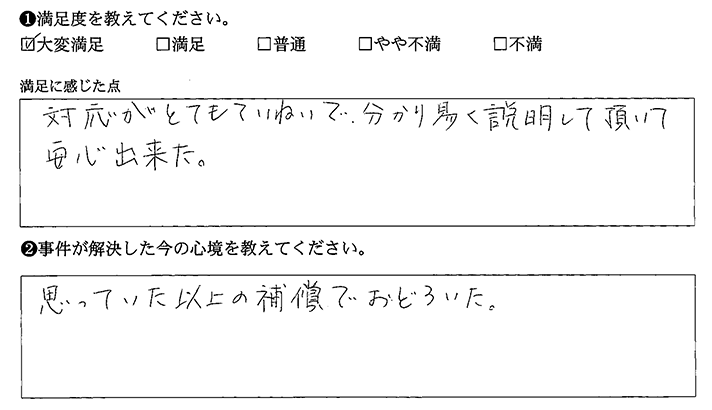 ❶満足度を教えてください。
☑大変満足 □満足 □普通 □やや不満 □不満
満足に感じた点
対応がとてもていねいで、分かり易く説明して頂いて
安心出来た。
❷事件が解決した今の心境を教えてください。
思っていた以上の補償でおどろいた。